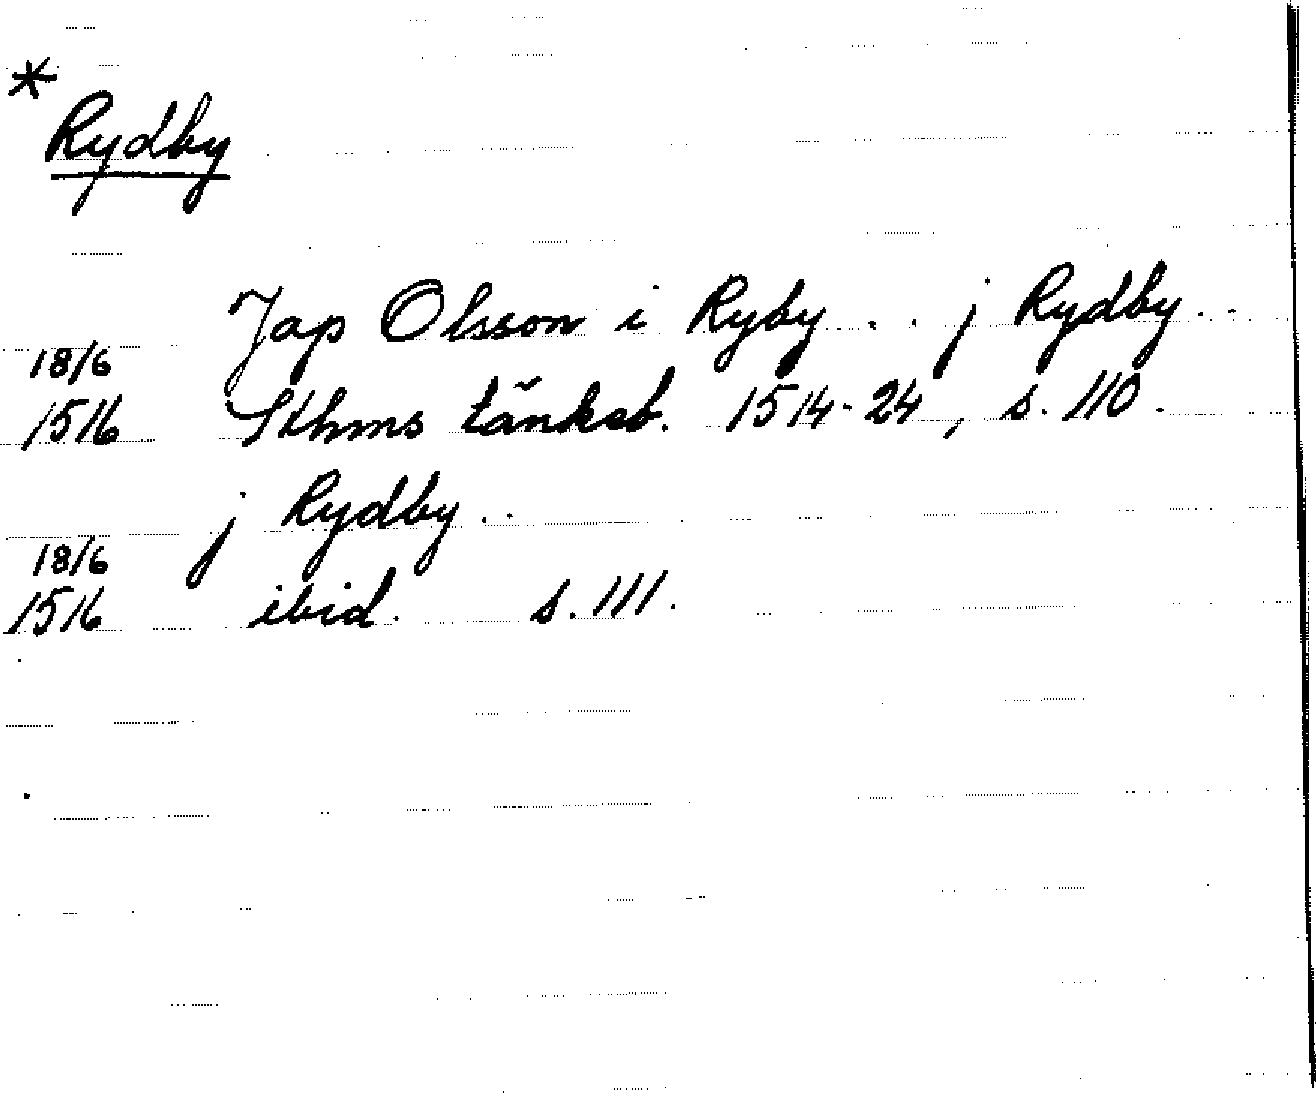 *
Rydby
Jap Olsson i Ryby . . j Rydby . .
18/6
1516 Sthms tänkeb. 1514-24, s. 110.
j Rydby . .
18/6
1516 ibid. s. 111.